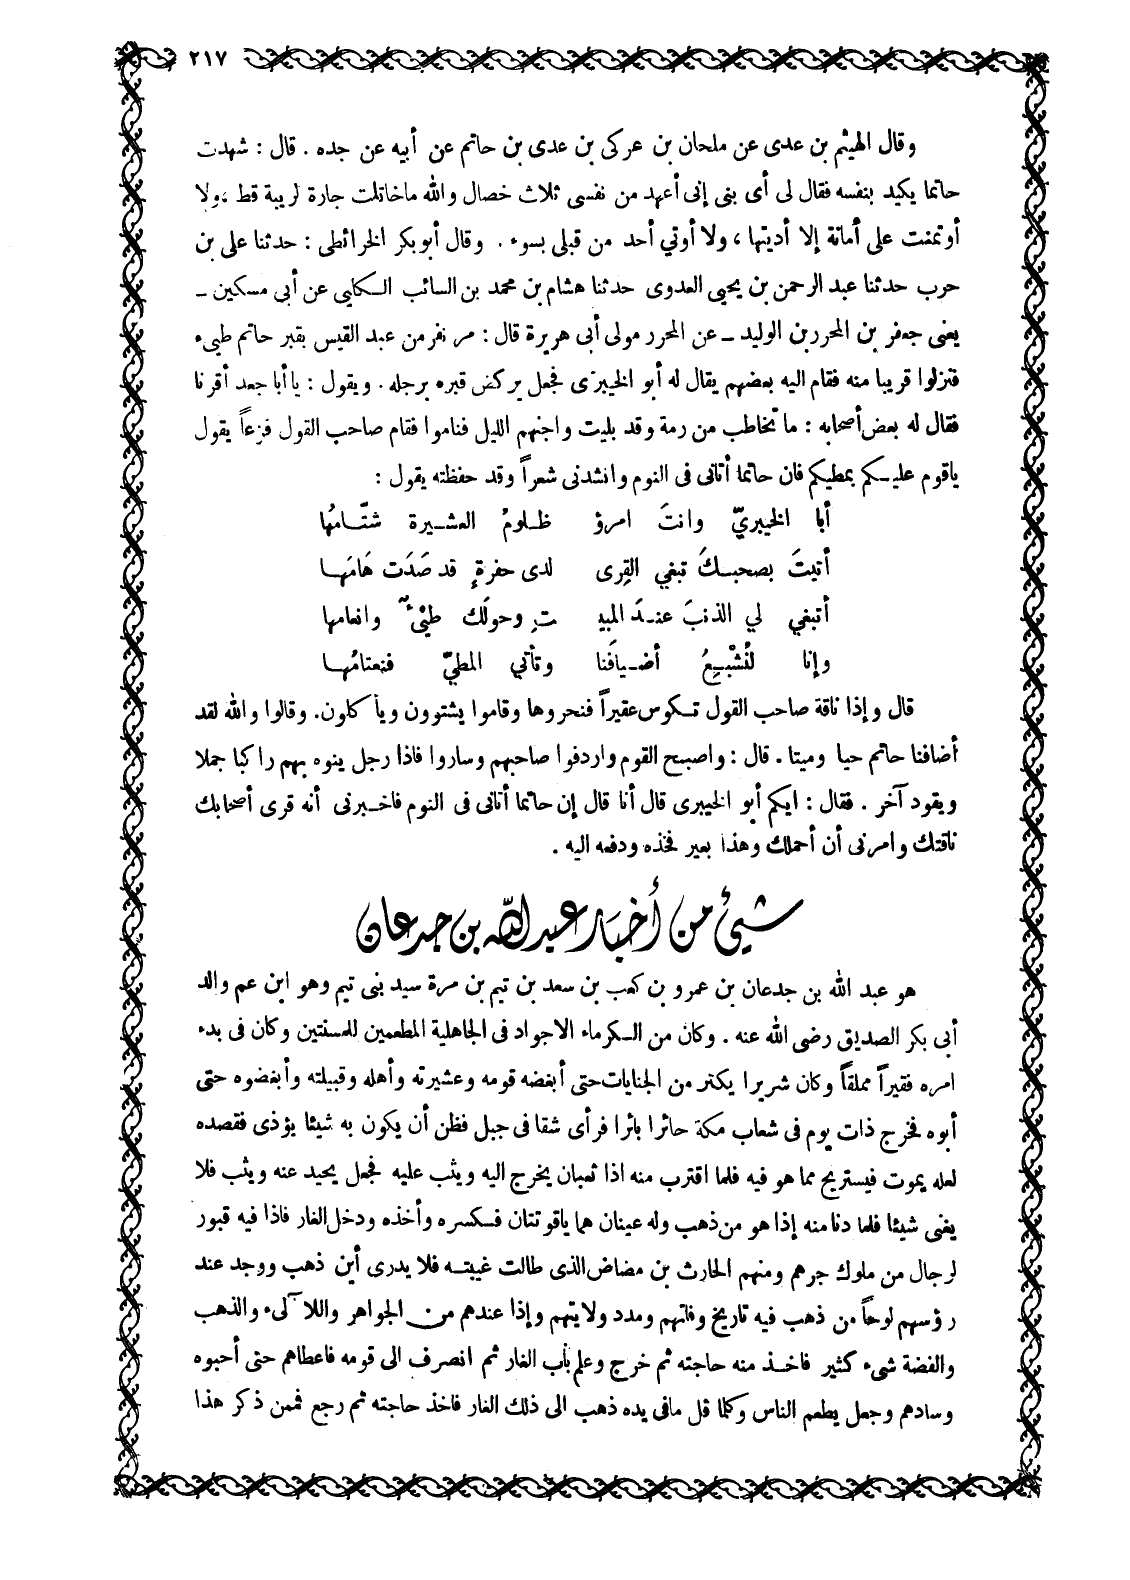 ٢١٧
وقال الهيثم بن عدى عن ملحان بن عركى بن عدى بن حاتم عن أبيه عن جده . قال : شهدت
حاتما يكيد بنفسه فقال لى أى بنى إنى أعهد من نفسى ثلاث خصال والله ماخاتلت جارة لريبة قط ، ولا
أوتمنت على أمانة إلا أديتها ، ولا أوتي أحد من قبلى بسوء . وقال أبو بكر الخرائطى : حدثنا على بن
حرب حدثنا عبد الرحمن بن يحيى العدوى حدثنا هشام بن محمد بن السائب الكلبى عن أبى مسكين ــ
يعنى جعفر بن المحرر بن الوليد ــ عن المحرر مولى أبى هريرة قال : مر نفر من عبد القيس بقبر حاتم طيىء
فنزلوا قريبا منه فقام اليه بعضهم يقال له أبو الخيبرى فجعل يركض قبره برجله . ويقول : يا أبا جعد أقرنا
فقال له بعض أصحابه : ما تخاطب من رمة وقد بليت واجنهم الليل فناموا فقام صاحب القول فزعاً يقول
ياقوم عليكم بمطيكم فان حاتما أتانى فى النوم وانشدنى شعراً وقد حفظته يقول :
أبا الخيبريّ وانتَ امرؤ ظلومُ العشيرة شتّامُها
أتيتَ بصحبكَ تبغي القِرى لدى حفرةٍ قد صَدَت هَامَها
أتبغي لي الذنبَ عندَ المبيـ تِ وحولَك طيّئٌ وانعامها
وإنا لنُشْبِعُ أضيافَنا وتأتي المطيّ فنعتامُها
قال وإذا ناقة صاحب القول تكوس عقيراً فنحروها وقاموا يشتوون ويأكلون. وقالوا والله لقد
أضافنا حاتم حيا وميتا . قال : واصبح القوم واردفوا صاحبهم وساروا فاذا رجل ينوه بهم راكبا جملا
ويقود آخر . فقال : ايكم أبو الخيبرى قال أنا قال إن حاتما أتانى فى النوم فاخبرنى أنه قرى أصحابك
ناقتك وامرنى أن أحملك وهذا بعير فخذه ودفعه اليه .
شيئ من أخبار عبد الله بن جدعان
هو عبد الله بن جدعان بن عمرو بن كعب بن سعد بن تيم بن مرة سيد بنى تيم وهو ابن عم والد
أبى بكر الصديق رضى الله عنه . وكان من الكرماء الاجواد فى الجاهلية المطعمين للمسنتين وكان فى بدء
امره فقيراً مملقاً وكان شريرا يكثر من الجنايات حتى أبغضه قومه وعشيرته وأهله وقبيلته وأبغضوه حتى
أبوه فخرج ذات يوم فى شعاب مكة حائرا بائرا فرأى شقا فى جبل فظن أن يكون به شيئا يؤذى فقصده
لعله يموت فيستريح مما هو فيه فلما اقترب منه اذا ثعبان يخرج اليه ويثب عليه فجعل يحيد عنه ويثب فلا
يغنى شيئا فلما دنا منه إذا هو من ذهب وله عينان هما ياقوتتان فكسره وأخذه ودخل الغار فاذا فيه قبور
لرجال من ملوك جرهم ومنهم الحارث بن مضاض الذى طالت غيبته فلا يدرى أين ذهب ووجد عند
رؤسهم لوحاً من ذهب فيه تاريخ وفاتهم ومدد ولايتهم وإذا عندهم من الجواهر واللآلىء والذهب
والفضة شىء كثير فاخذ منه حاجته ثم خرج وعلم باب الغار ثم انصرف الى قومه فاعطاهم حتى أحبوه
وسادهم وجعل يطعم الناس وكلما قل مافى يده ذهب الى ذلك الغار فاخذ حاجته ثم رجع فممن ذكر هذا